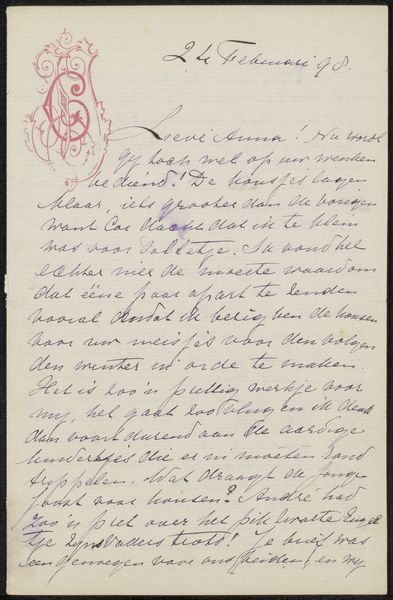 2de Februari 98.
Lieve Anna! Nu wordt
gij toch wel op uw wenken
bediend! De kousjes lagen
klaar, iets grooter dan de vorigen
want Cor dacht dat ik te klein
was voor. Ik vond het
echter niet de moeite waard om
dat ééne paar apart te zenden
vooral omdat ik bezig ben de kousen
voor uw meisjes voor den volgen
den winter in orde te maken.
Het is zoo'n prettig werkje voor
mij, het gaat zoo vlug en ik denk
dan voortdurend aan de aardige
kindertjes die er in moeten rond
trippelen. Wat draagt de jonge
Joost voor kousen? André had
zoo'n pret over het pikzwarte
tje zijns Vaders trots! Je brief was
een genoegen voor ons beiden, en mij